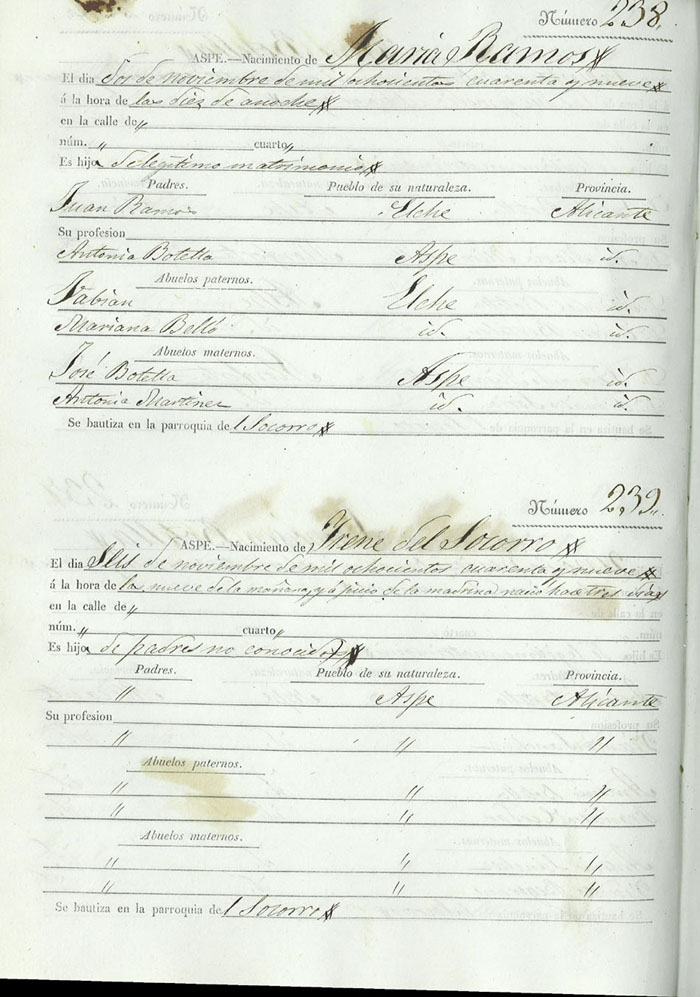 Número 238.
ASPE.—Nacimiento de María Ramos
El dia dos de noviembre de mil ochocientos cuarenta y nueve
á la hora de las diez de anoche
en la calle de "
núm. " cuarto "
Es hija de legítimo matrimonio
Padres. Pueblo de su naturaleza. Provincia.
Juan Ramos Elche Alicante
Su profesion
Antonia Botella Aspe id.
Abuelos paternos.
Fabian Elche id.
Mariana Belló id. id.
Abuelos maternos.
José Botella Aspe id.
Antonia Martinez id. id.
Se bautiza en la parroquia del Socorro
Número 239.
ASPE.—Nacimiento de Irene del Socorro
El dia Seis de noviembre de mil ochocientos cuarenta y nueve
á la hora de las nueve de la mañana, y á juicio de la madrina nació hace tres dias
en la calle de "
núm. " cuarto "
Es hija de padres no conocidos
Padres. Pueblo de su naturaleza. Provincia.
" Aspe Alicante
Su profesion
" " "
Abuelos paternos.
" " "
" " "
Abuelos maternos.
" " "
" " "
Se bautiza en la parroquia del Socorro